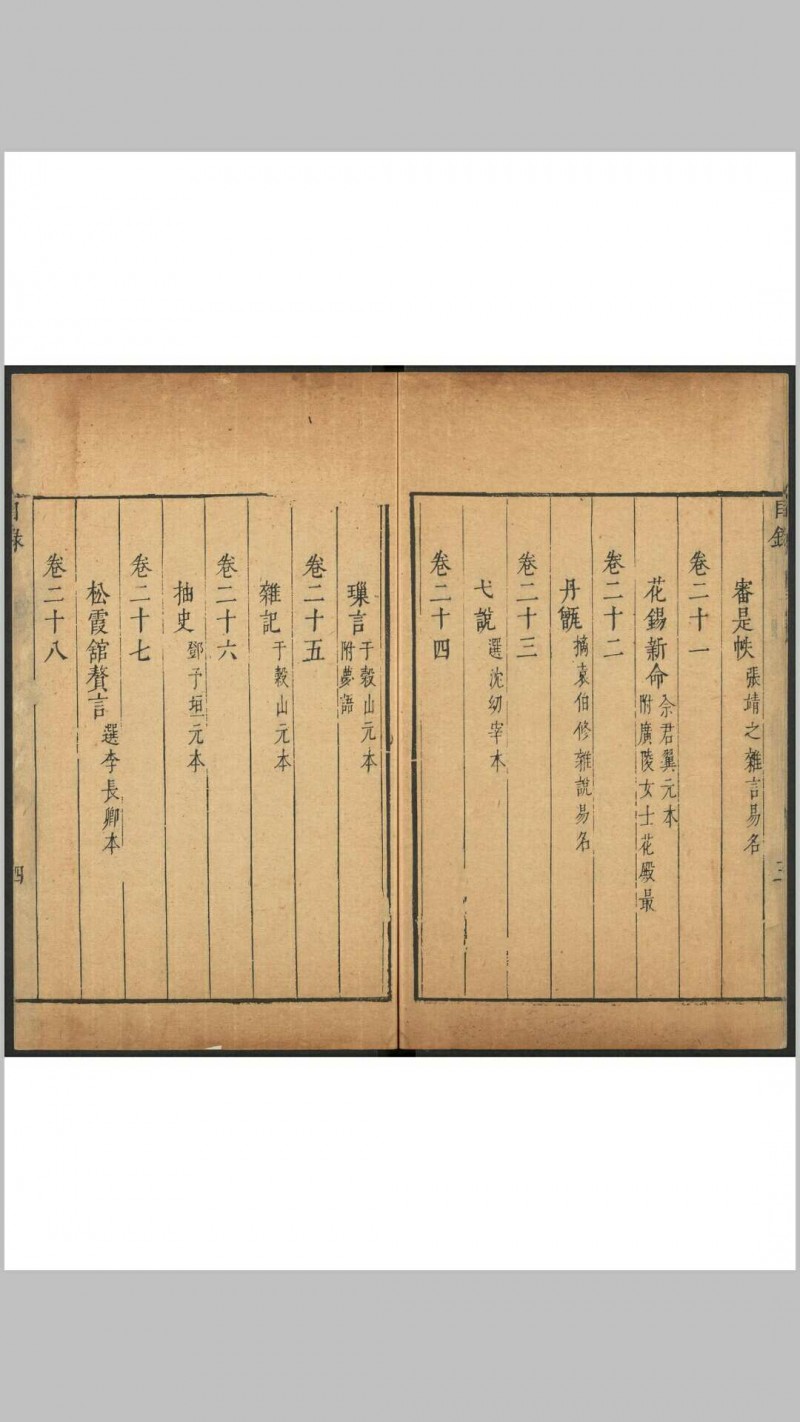 目錄
三
審是帙 張靖之雜言易名
卷二十一
花錫新命 佘君翼元本
附廣陵女士花殿最
卷二十二
丹甀 摘袁伯修雜說易名
卷二十三
弋說 選沈幼宰本
卷二十四
璅言 于榖山元本
附夢語
卷二十五
雜記 于榖山元本
卷二十六
抽史 鄧予垣元本
卷二十七
松霞舘贅言 選李長卿本
卷二十八
目錄
四